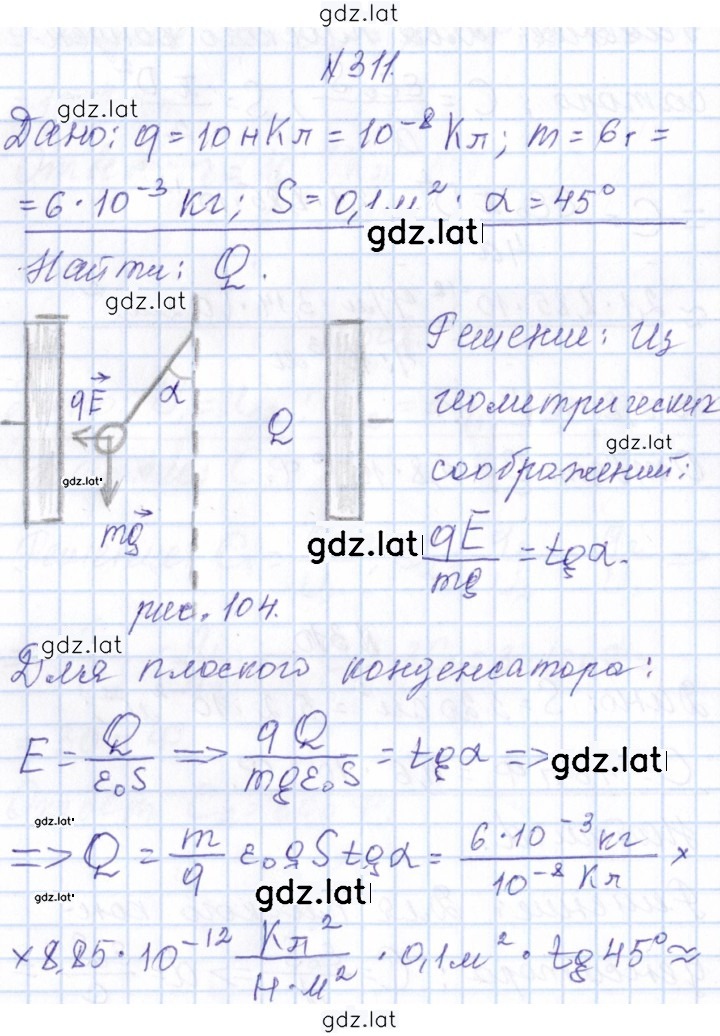 gdz.lat
N 311.
gdz.lat
Дано: q = 10 нКл = 10⁻⁸ Кл; m = 6 г =
= 6·10⁻³ кг; S = 0,1 м²; α = 45°
gdz.lat
Найти: Q.
gdz.lat
Решение: Из
геометрических
соображений:
gdz.lat
qE/mg = tgα.
qE⃗
α
Q
gdz.lat
mg⃗
gdz.lat
рис. 104.
gdz.lat
Для плоского конденсатора:
E = Q/ε₀S => qQ/mgε₀S = tgα =>
gdz.lat
gdz.lat
=> Q = m/q ε₀gS tgα = 6·10⁻³ кг/10⁻⁸ Кл ×
gdz.lat
gdz.lat
× 8,85·10⁻¹² Кл²/Н·м² · 0,1 м² · tg 45° ≈
gdz.lat